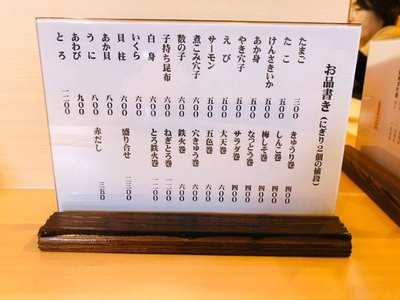 お品書き(にぎり2個の値段)
たまご 三〇〇
たこ 五〇〇
けんさきいか 五〇〇
あか身 五〇〇
やき穴子 五〇〇
えび 五〇〇
サーモン 五〇〇
煮こみ穴子 六〇〇
数の子 六〇〇
子持ち昆布 六〇〇
白身 六〇〇
いくら 六〇〇
貝柱 六〇〇
あか貝 八〇〇
うに 八〇〇
あわび 九〇〇
とろ 一二〇〇
きゅうり巻 四〇〇
しんこ巻 四〇〇
梅しそ巻 四〇〇
なっとう巻 四〇〇
サラダ巻 四〇〇
大天巻 六〇〇
五色巻 六〇〇
穴きゅう巻 六〇〇
鉄火巻 六〇〇
ねぎとろ巻 一一〇〇
とろ鉄火巻 一二〇〇
盛り合せ 二三〇〇
赤だし 三五〇